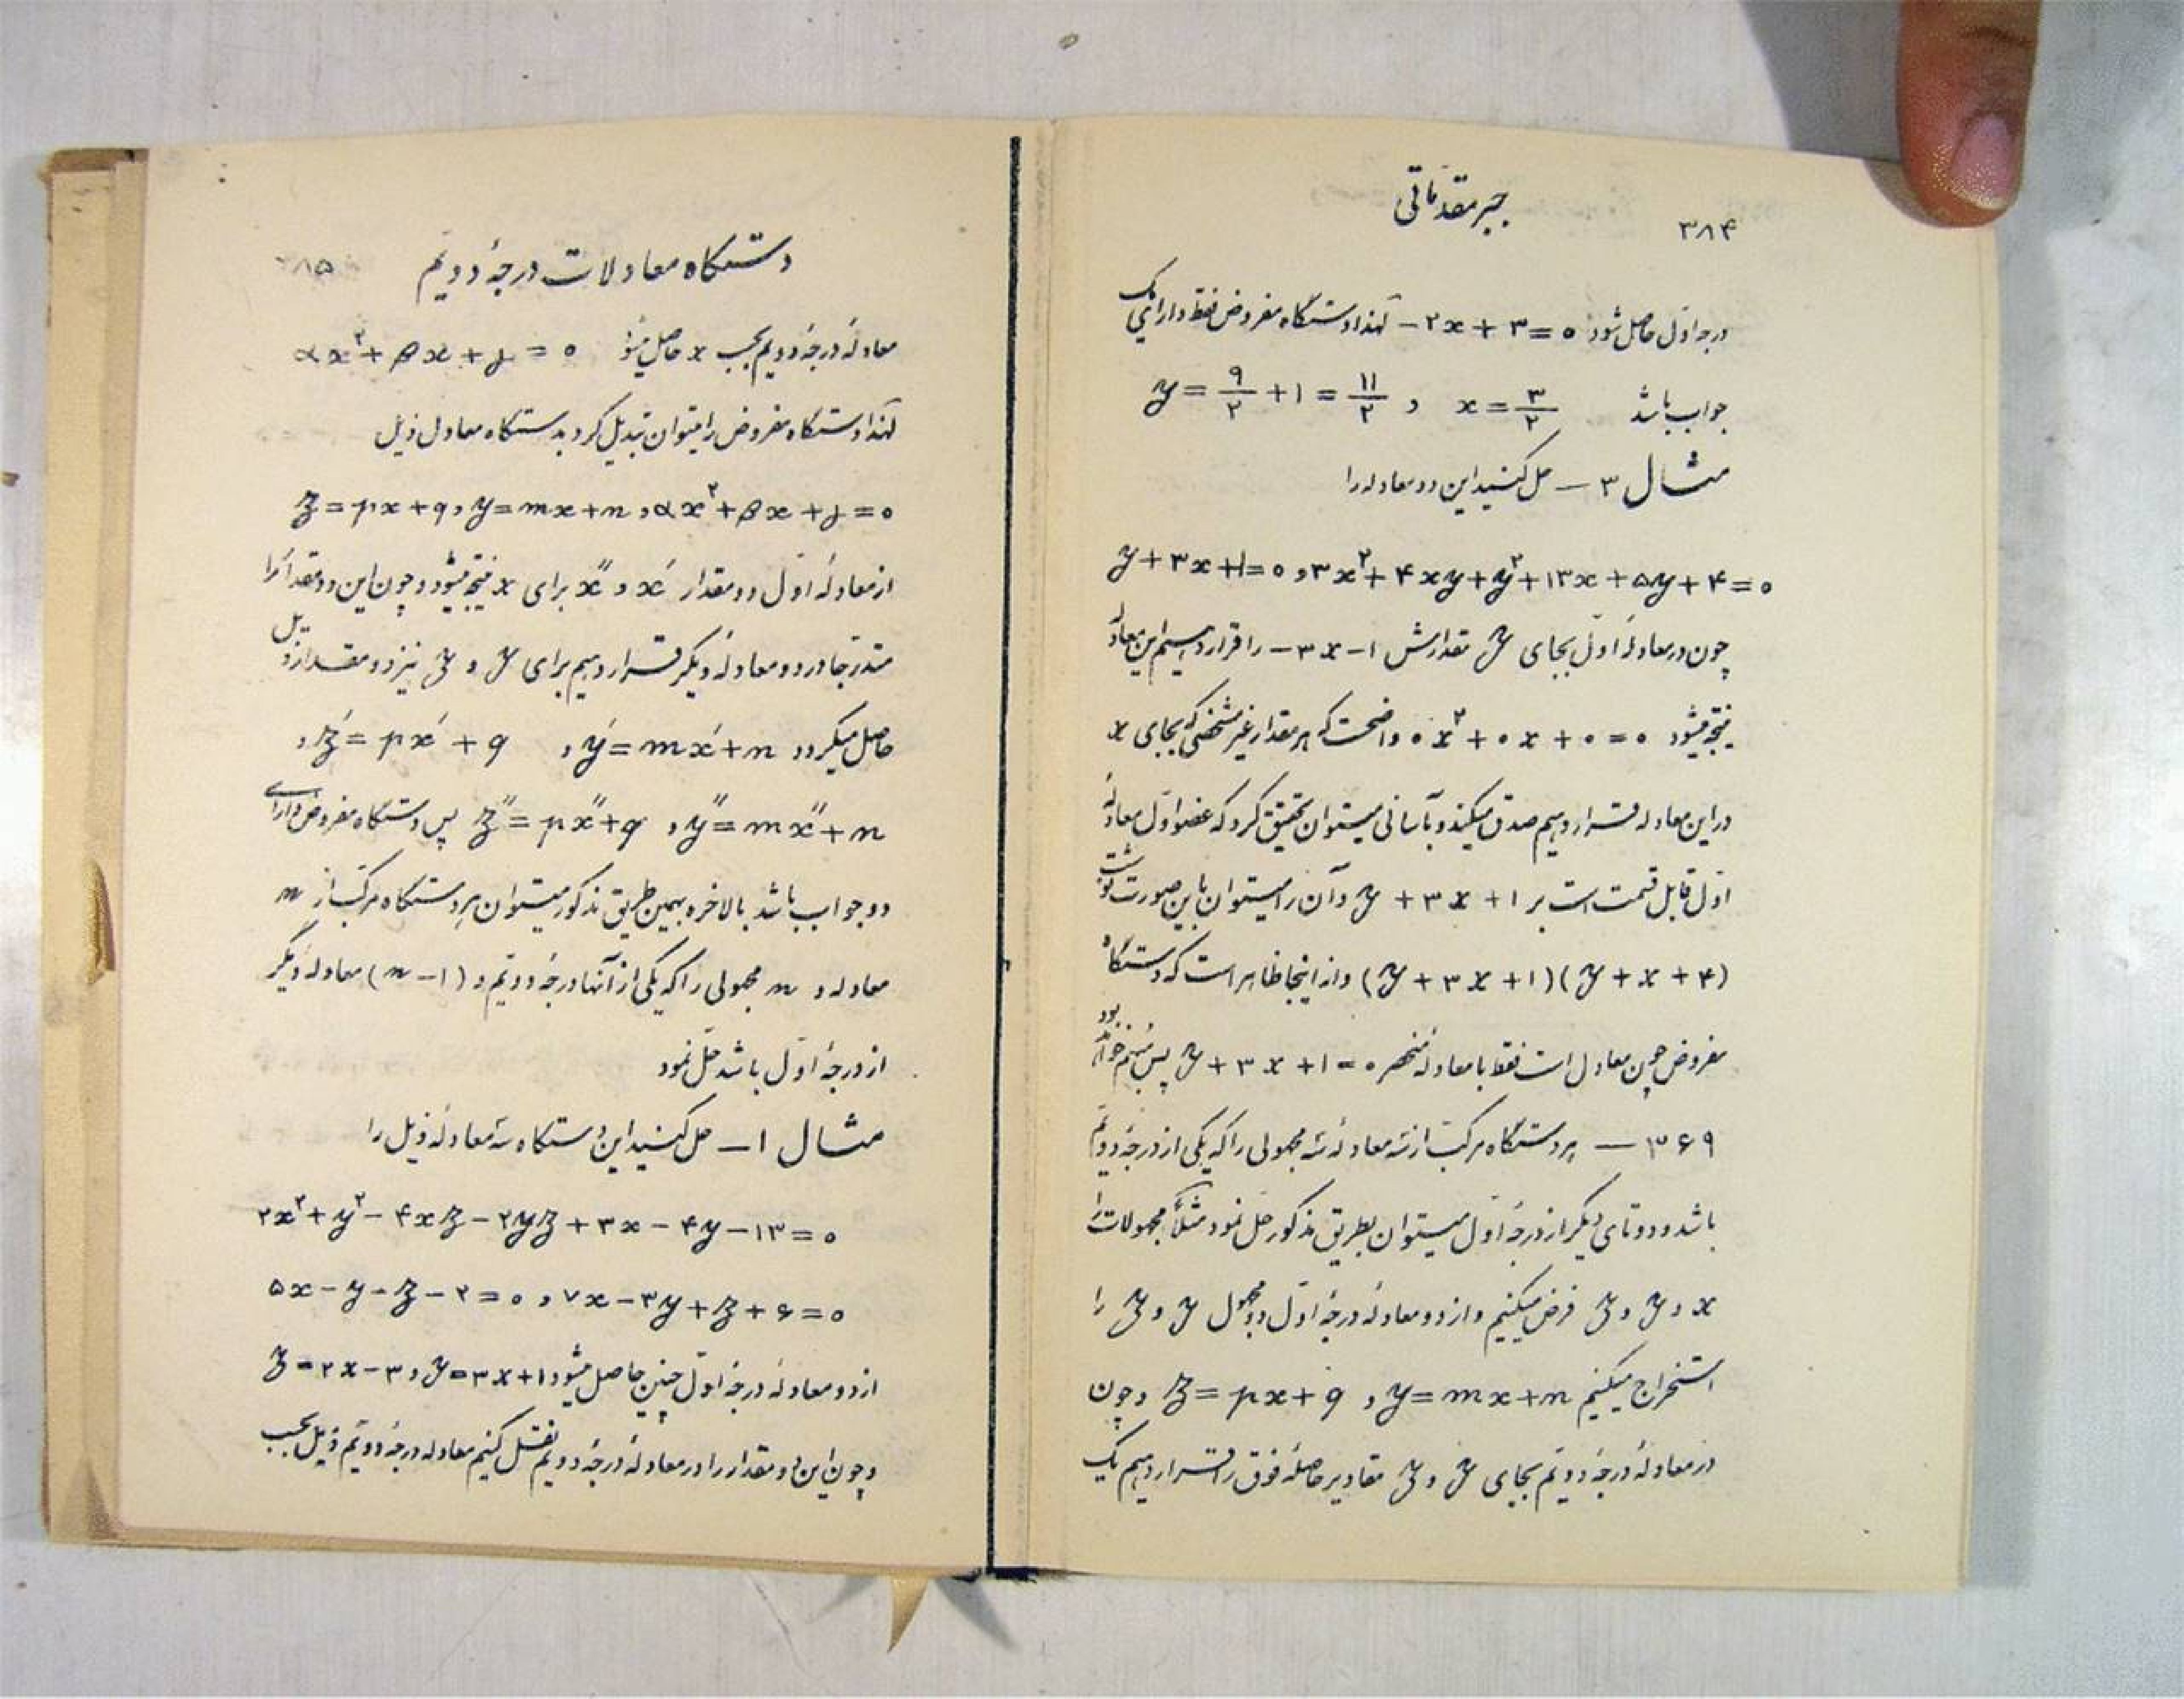 جبر مقدماتی
۳۸۴
درجه اول حاصل شود ۰=۳+۲x− لهذا دستگاه مفروض فقط دارای یک
جواب باشد x=۳/۲ و y=۹/۲+۱=۱۱/۲
مثال ۳ — حل کنید این دو معادله را
y+۳x+۱=۰ و ۳x²+۴xy+y²+۱۳x+۵y+۴=۰
چون در معادلهٔ اول بجای y مقدارش −۳x−۱ را قرار دهیم این معادله
نتیجه میشود ۰x²+۰x+۰=۰ واضحست که هر مقدار غیر مشخصی که بجای x
در این معادله قرار دهیم صدق میکند و بآسانی میتوان تحقیق کرد که عضو اول معادلهٔ
اول قابل قسمت است بر y+۳x+۱ و آن را میتوان باین صورت نوشت
(y+۳x+۱)(y+x+۴) و از اینجا ظاهر است که دستگاه
مفروض چون معادل است فقط با معادلهٔ منحصر y+۳x+۱=۰ پس مبهم خواهد بود
۳۶۹ — هر دستگاه مرکب از سه معادلهٔ سه مجهولی را که یکی از درجهٔ دویم
باشد و دو تای دیگر از درجهٔ اول میتوان بطریق مذکور حل نمود مثلاً مجهولات را
x و y و z فرض میکنیم و از دو معادلهٔ درجهٔ اول دو مجهول y و z را
استخراج میکنیم y=mx+n و z=px+q و چون
در معادلهٔ درجهٔ دویم بجای y و z مقادیر حاصلهٔ فوق را قرار دهیم یک
دستگاه معادلات درجهٔ دویم
۳۸۵
معادلهٔ درجهٔ دویم بحسب x حاصل میشود αx²+βx+γ=۰
لهذا دستگاه مفروض را میتوان تبدیل کرد بدستگاه معادل ذیل
z=px+q و y=mx+n و αx²+βx+γ=۰
از معادلهٔ اول دو مقدار x′ و x″ برای x نتیجه میشود و چون این دو مقدار را
متدرجا در دو معادلهٔ دیگر قرار دهیم برای y و z نیز دو مقدار ذیل
حاصل میگردد y′=mx′+n و z′=px′+q و
y″=mx″+n و z″=px″+q پس دستگاه مفروض دارای
دو جواب باشد بالاخره بهمین طریق مذکور میتوان هر دستگاه مرکب از n
معادله و n مجهولی را که یکی از آنها درجهٔ دویم و (n−۱) معادلهٔ دیگر
از درجهٔ اول باشد حل نمود
مثال ۱ — حل کنید این دستگاه سه معادلهٔ ذیل را
۲x²+y²−۴xz−۲yz+۳x−۴y−۱۳=۰
۵x−y−z−۲=۰ و ۷x−۳y+z+۶=۰
از دو معادلهٔ درجهٔ اول چنین حاصل میشود y=۳x+۱ و z=۲x−۳
و چون این دو مقدار را در معادلهٔ درجهٔ دویم نقل کنیم معادله درجهٔ دویم ذیل بحسب